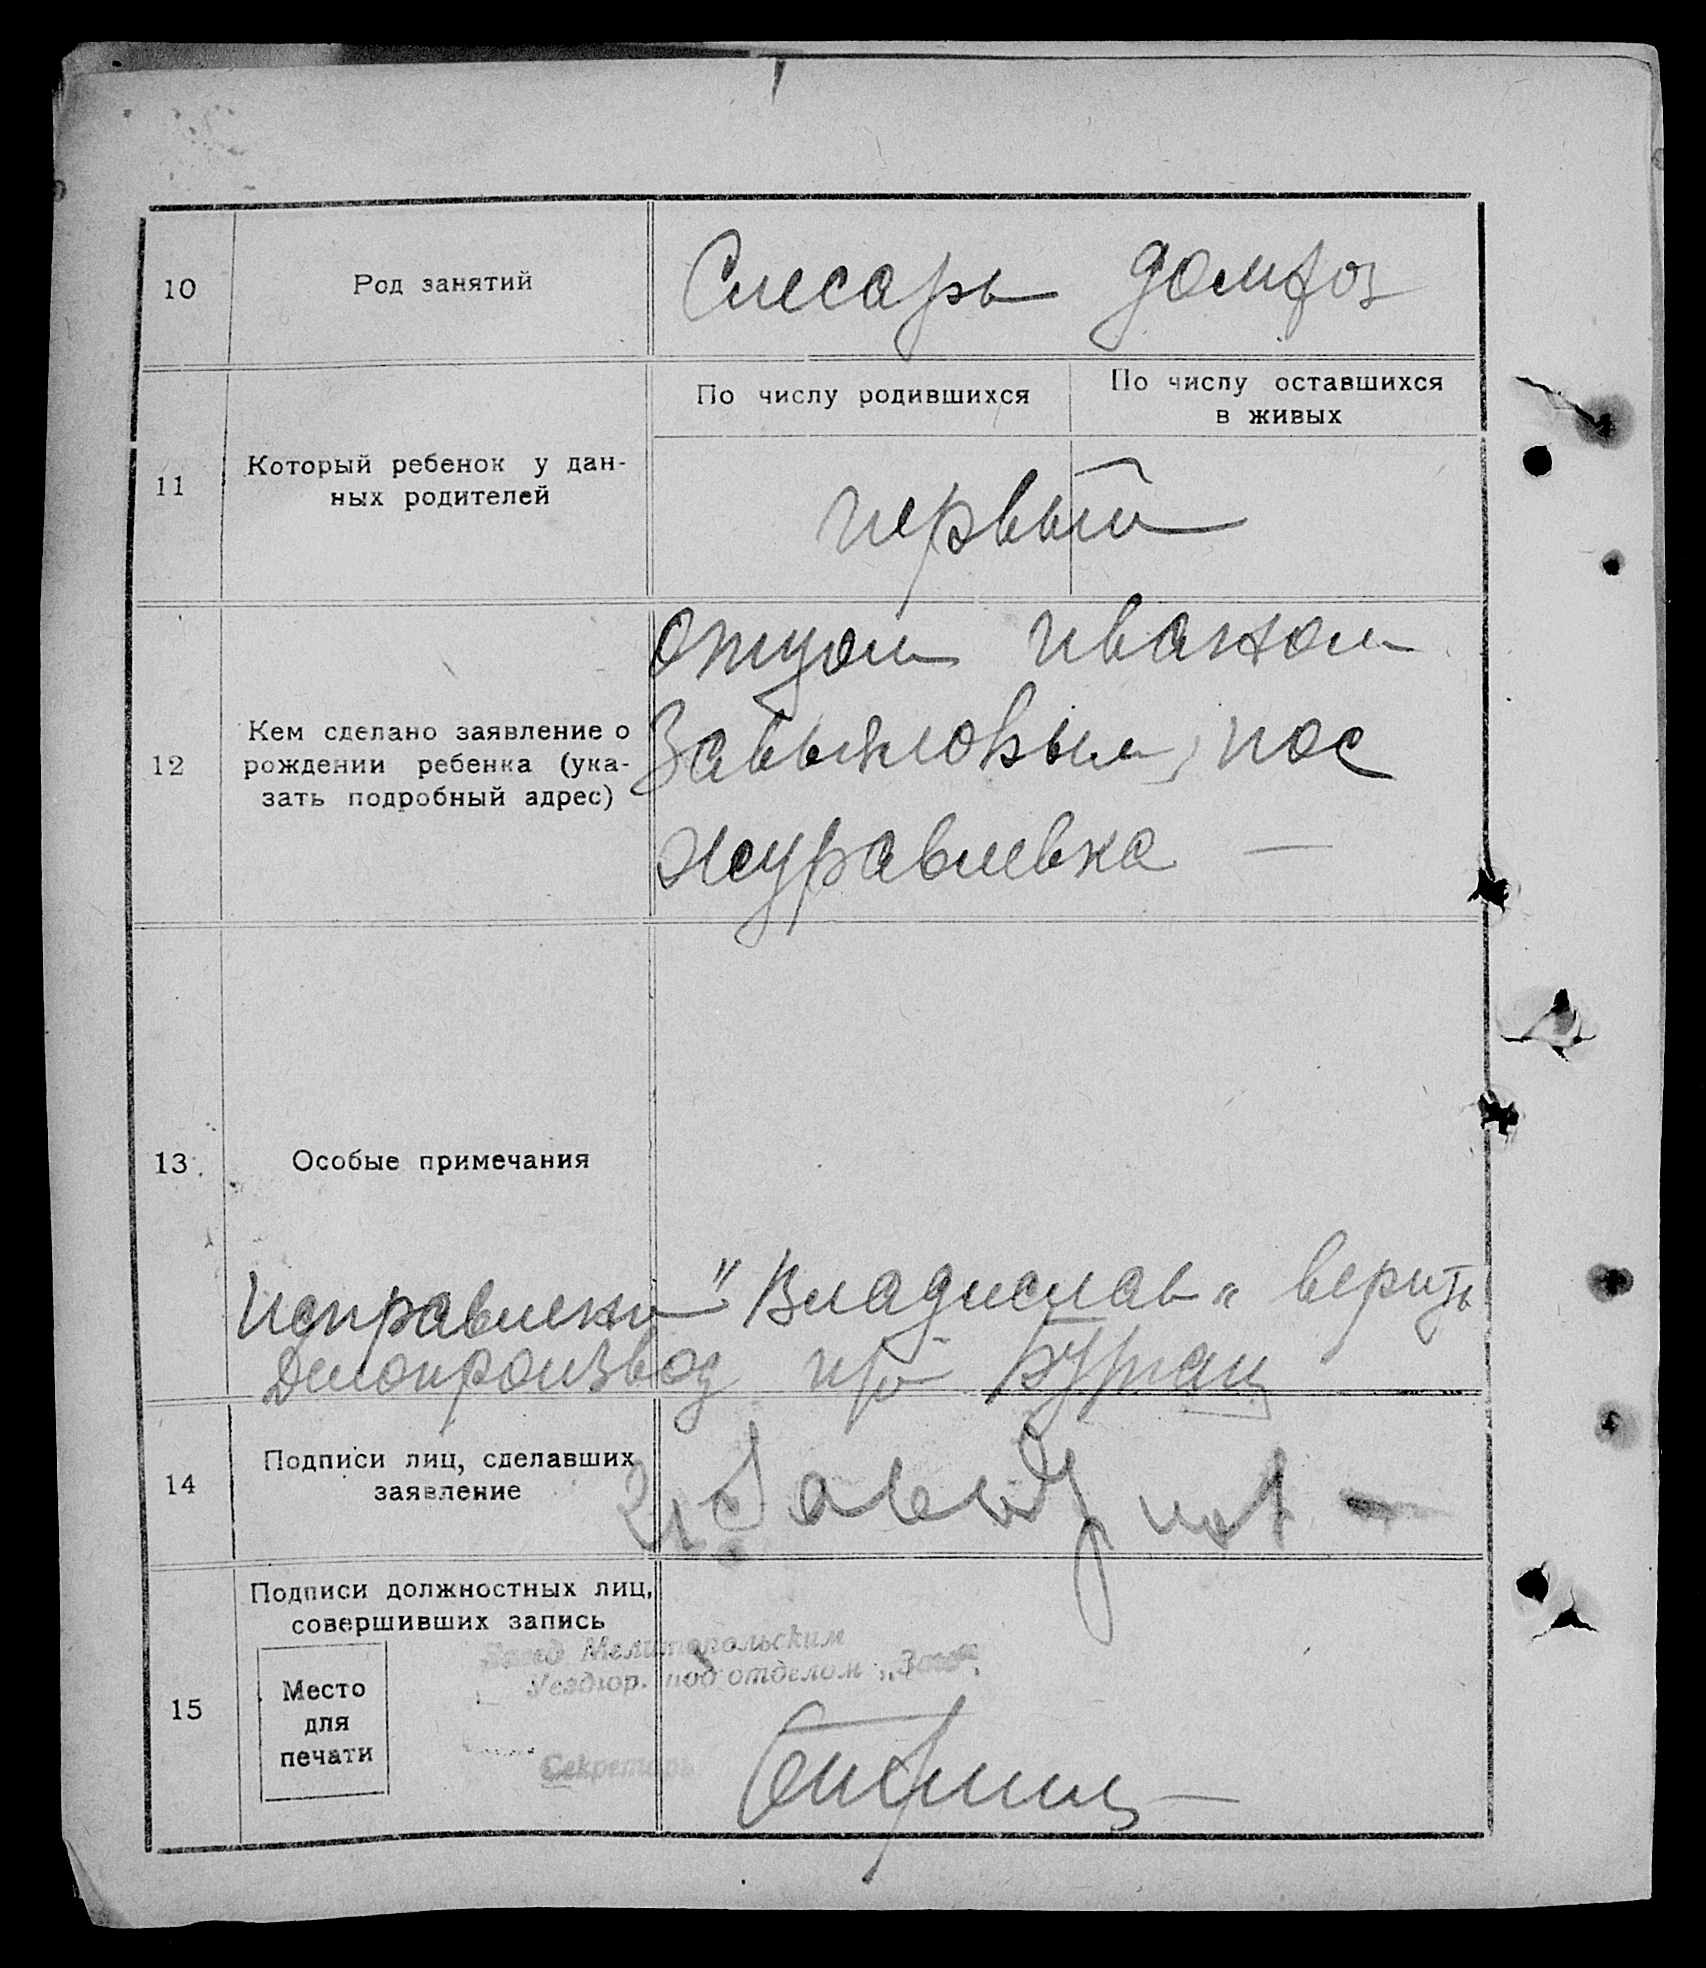 10 Род занятий Слесарь домхоз
По числу родившихся По числу оставшихся
в живых
11 Который ребенок у дан-
ных родителей
первый
отцом Иваном
Завьяловым, пос
Журавлевка —
12 Кем сделано заявление о
рождении ребенка (ука-
зать подробный адрес)
13. Особые примечания
Исправлено "Владислав" верить
Делопроизвод
14 Подписи лиц, сделавших
заявление
Подписи должностных лиц,
совершивших запись
Мелитопольским
под отделом
15 Место
для
печати
Секретарь